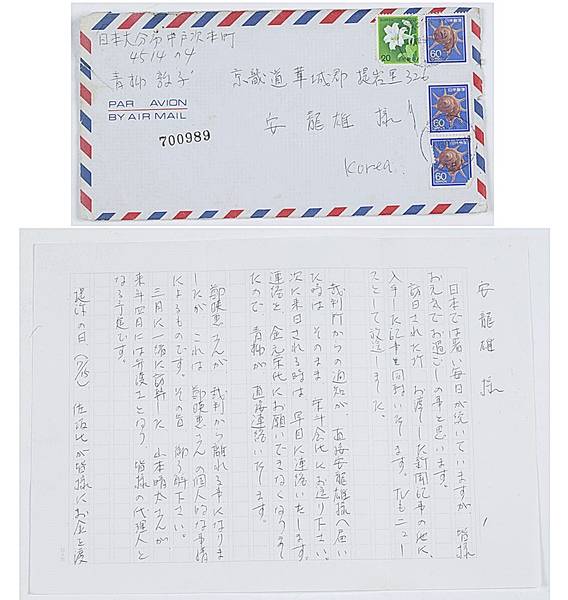 日本大分市中戸次本町
4514の4
青柳敦子
PAR AVION
BY AIR MAIL
700989
京畿道華城郡堤岩里326
安龍雄様
Korea
20
60
60
60
安龍雄様
日本では暑い毎日が続いていますが 皆様
お元気でお過ごしの事と思います。
訪日された折 お渡しした新聞記事の他に、
入手した記事を同封いたします。TVもニュー
スとして放送しました。
裁判所からの通知が 直接安龍雄様へ届い
た時は そのまま 宋斗会代にお送り下さい。
次に来日される時は 早目に連絡いたします。
連絡を 金元栄代にお願いできなくなりまし
たので 青柳が 直接連絡いたします。
鄭暎恵さんが 裁判から離れる事になりま
したが これは 鄭暎恵さんの個人的な事情
によるものです。その旨 御了解下さい。
三月に一緒に訪れました山本晴太さんが
来年四月には弁護士となり 皆様の代理人と
なる予定です。
堤岩の日(7/15) 佐治氏が皆様にお金を渡